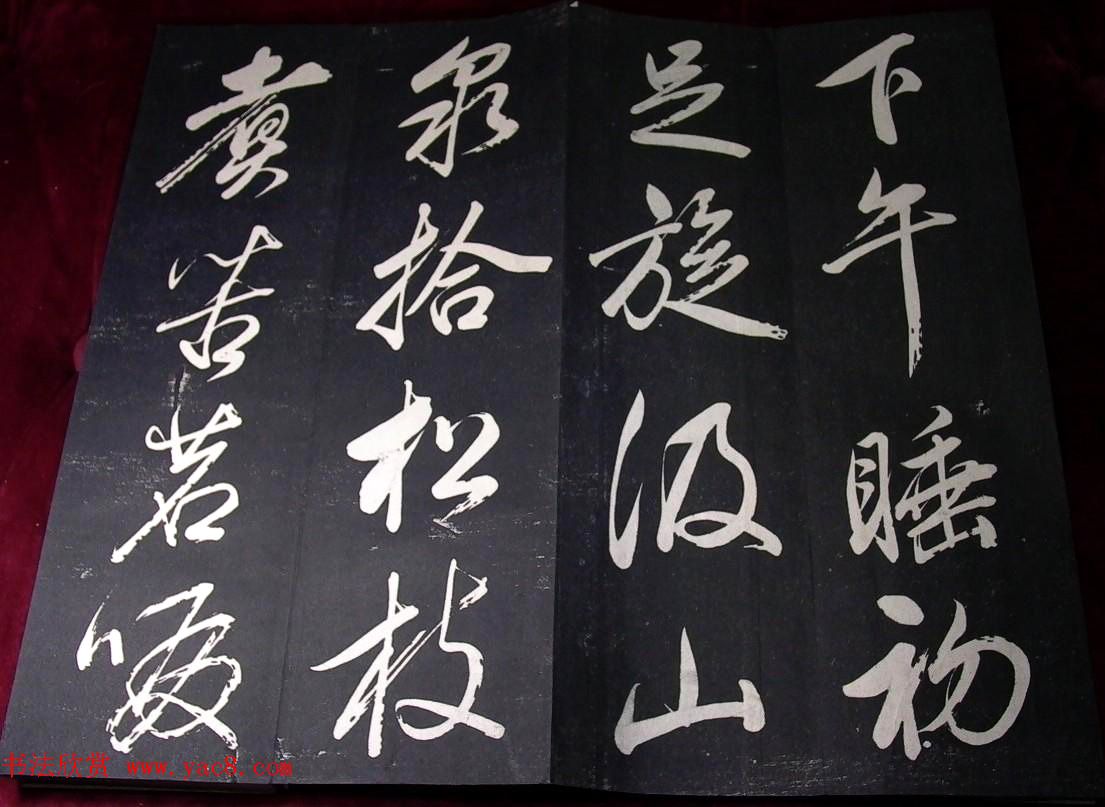 下午睡初
足旋汲山
泉拾松枝
煑苦茗啜
书法欣赏 www.yac8.com